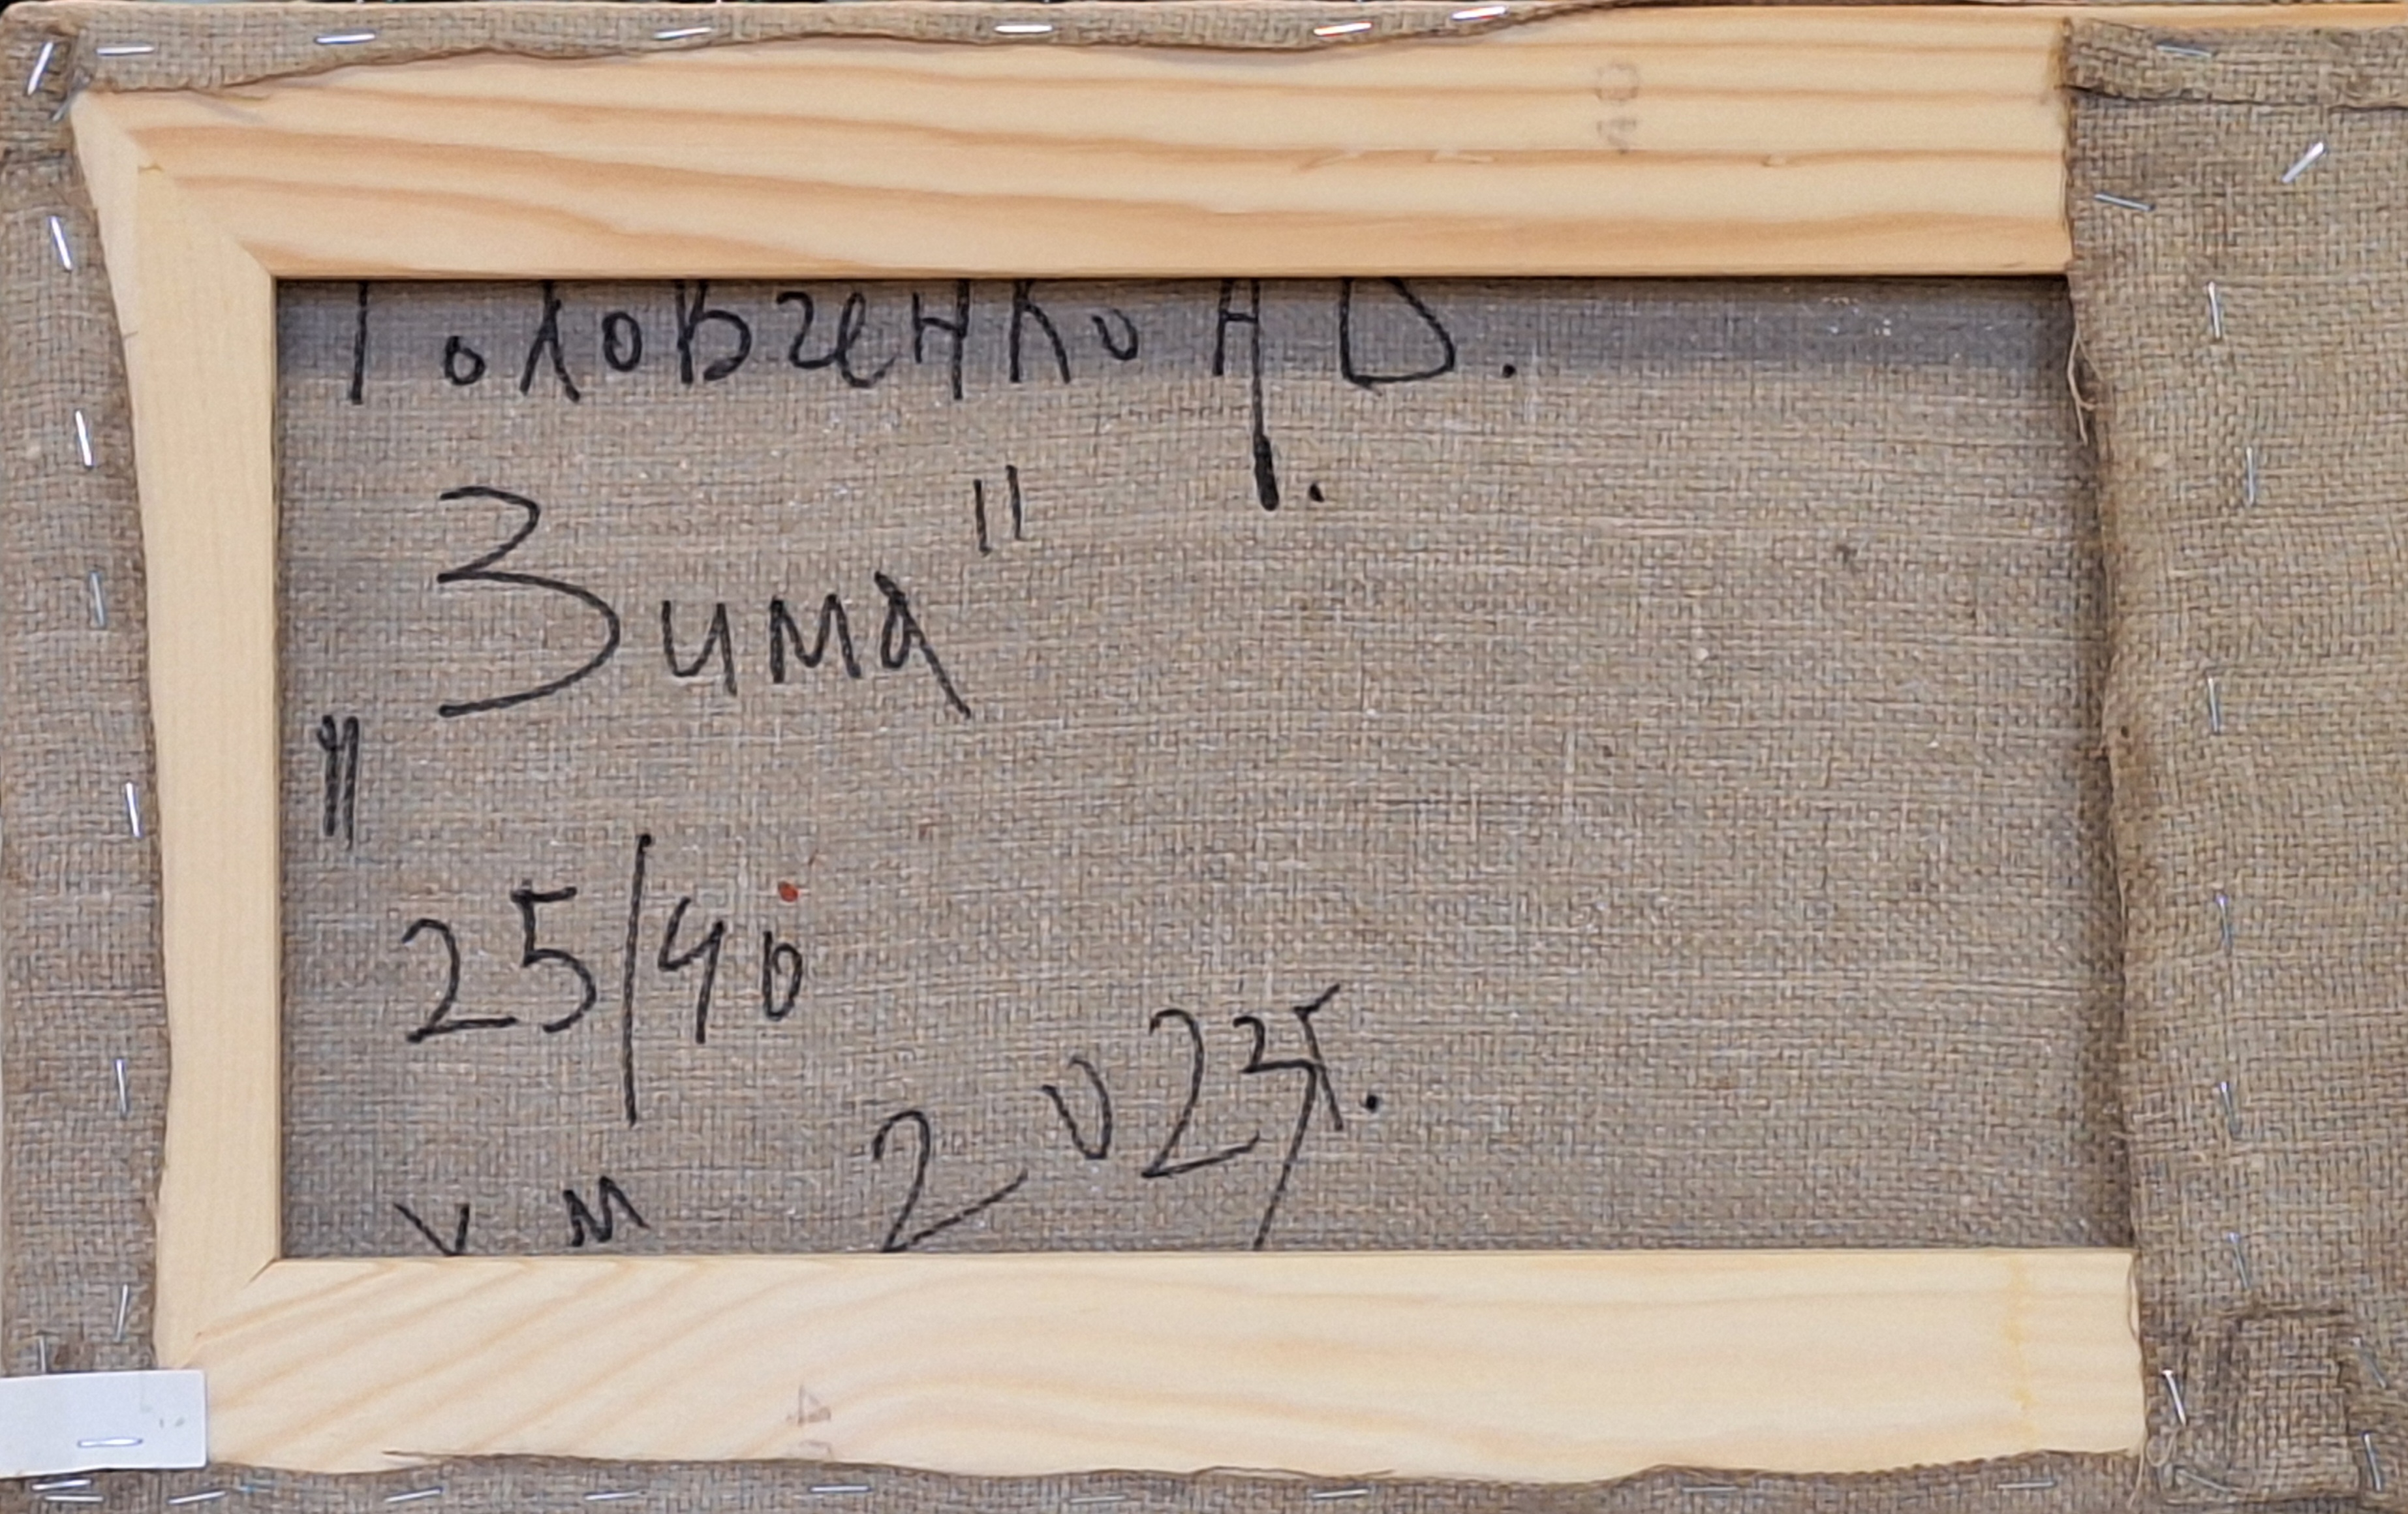 Головченко А. В.
"Зима"
25/40
х м 2023г.
40